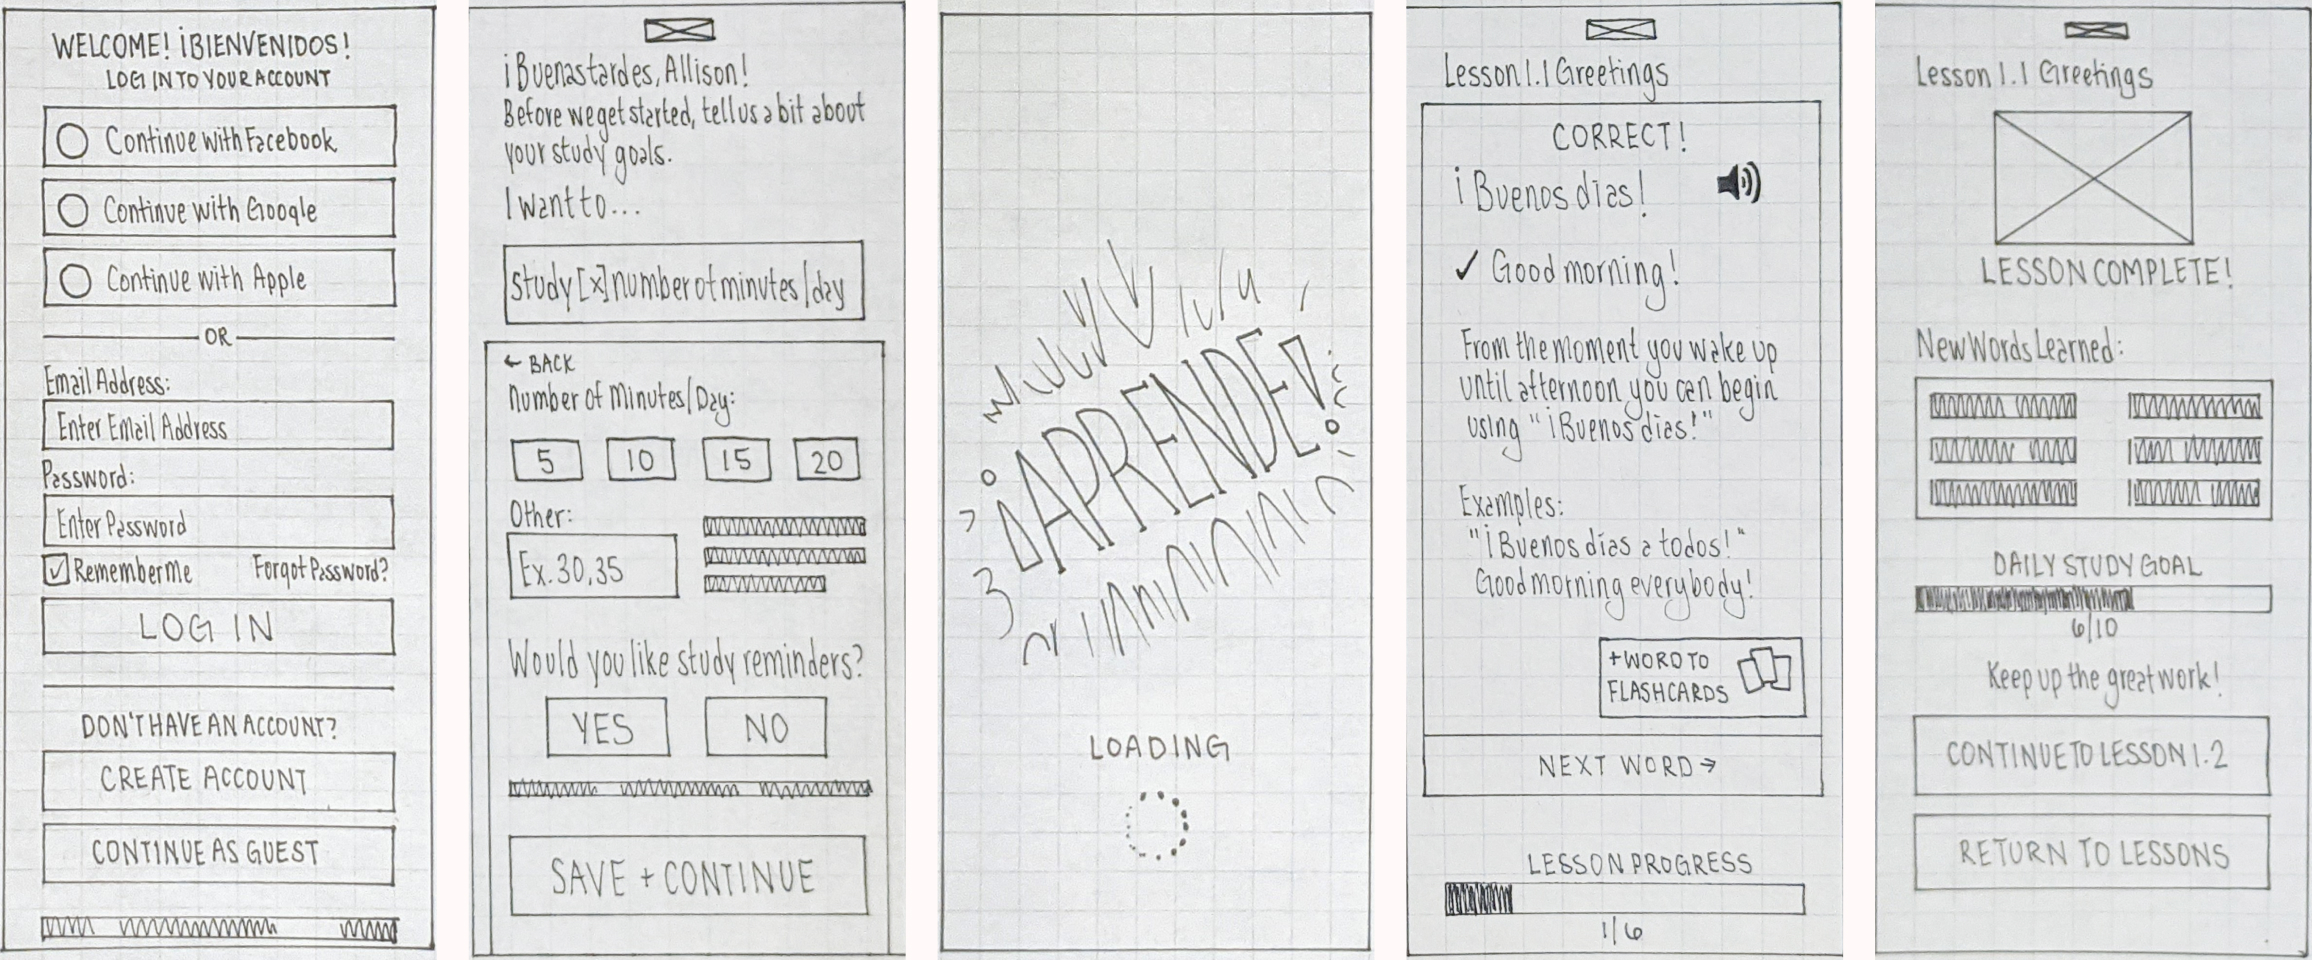 WELCOME! ¡BIENVENIDOS!
LOG IN TO YOUR ACCOUNT
Continue with Facebook
Continue with Google
Continue with Apple
OR
Email Address:
Enter Email Address
Password:
Enter Password
Remember Me
Forgot Password?
LOG IN
DON'T HAVE AN ACCOUNT?
CREATE ACCOUNT
CONTINUE AS GUEST
¡Buenas tardes, Allison!
Before we get started, tell us a bit about
your study goals.
I want to...
study [x] number of minutes/day
← BACK
Number of Minutes/Day:
5
10
15
20
Other:
Ex. 30, 35
Would you like study reminders?
YES
NO
SAVE + CONTINUE
¡APRENDE!
LOADING
Lesson 1.1 Greetings
CORRECT!
¡Buenos días!
✓ Good morning!
From the moment you wake up
until afternoon you can begin
using "¡Buenos días!"
Examples:
"¡Buenos días a todos!"
Good morning everybody!
+ WORD TO
FLASHCARDS
NEXT WORD →
LESSON PROGRESS
1/6
Lesson 1.1 Greetings
LESSON COMPLETE!
New Words Learned:
DAILY STUDY GOAL
6/10
Keep up the great work!
CONTINUE TO LESSON 1.2
RETURN TO LESSONS